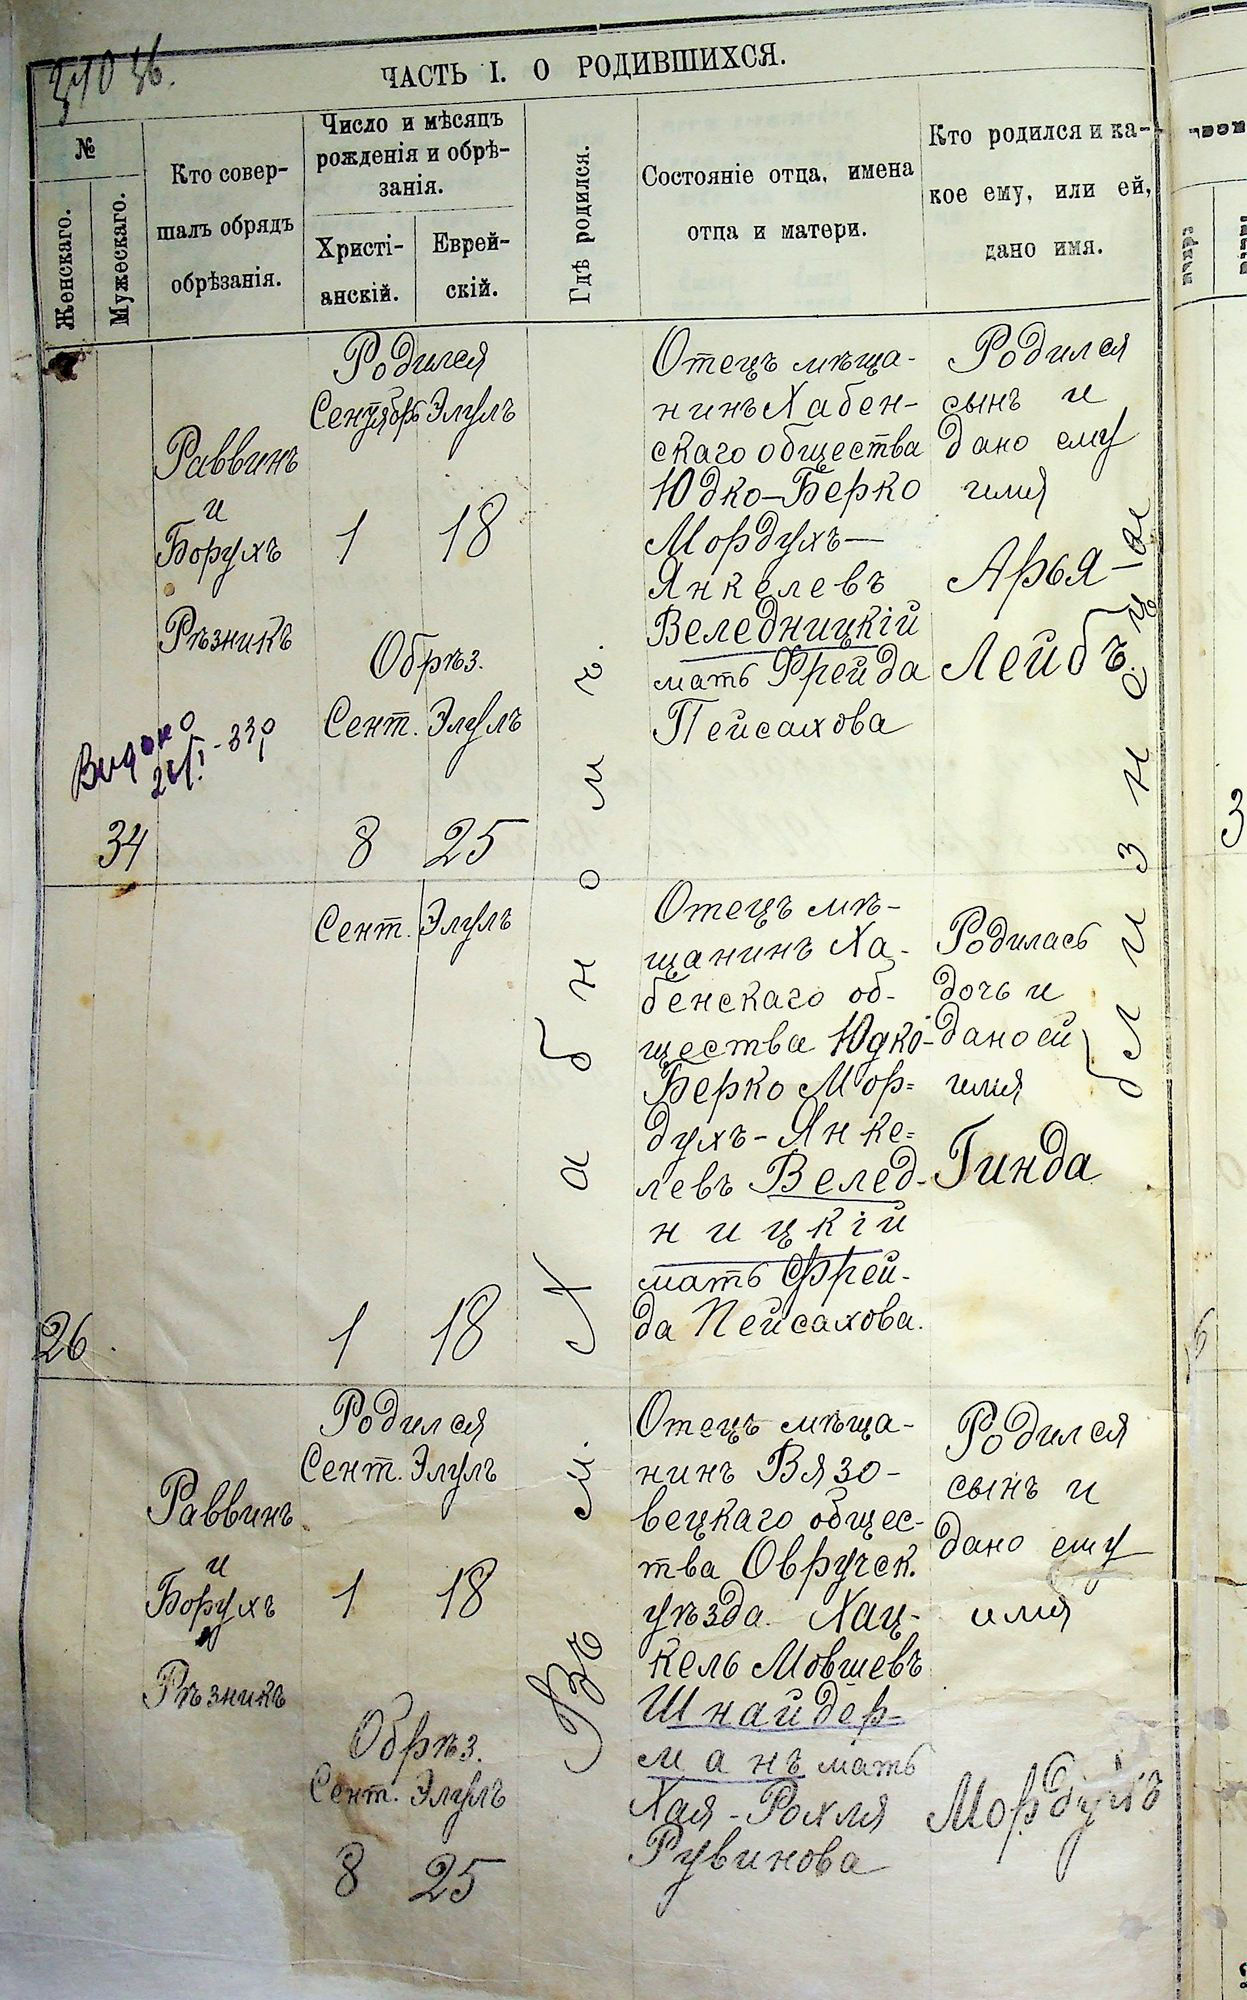 ЧАСТЬ I. О РОДИВШИХСЯ.
№
Женскаго.
Мужескаго.
Кто совер-
шалъ обрядъ
обрѣзанія.
Число и мѣсяцъ
рожденія и обрѣ-
занія.
Христі-
анскій.
Еврей-
скій.
Гдѣ родился.
Состояніе отца, имена
отца и матери.
Кто родился и ка-
кое ему, или ей,
дано имя.
34
Раввинъ
и
Борухъ
Рѣзникъ
Видано
Родился
Сентябрь Элулъ
1 18
Обрѣз.
Сент. Элулъ
8 25
Въ м. Хабномъ.
Отецъ мѣща-
нинъ Хабен-
скаго общества
Юдко-Берко
Мордухъ-
Янкелевъ
Веледницкій
мать Фрейда
Пейсахова
Родился
сынъ и
дано ему
имя
Арья-
Лейбъ.
близнецы
26
Сент. Элулъ
1 18
Отецъ мѣ-
щанинъ Ха-
бенскаго об-
щества Юдко-
Берко Мор-
духъ-Янке-
левъ Велед-
ницкій
мать Фрей-
да Пейсахова.
Родилась
дочь и
дано ей
имя
Гинда
Раввинъ
и
Борухъ
Рѣзникъ
Родился
Сент. Элулъ
1 18
Обрѣз.
Сент. Элулъ
8 25
Отецъ мѣща-
нинъ Вязо-
вецкаго общес-
тва Овручск.
уѣзда Хац-
кель Мовшевъ
Шнайдер-
манъ мать
Хая-Рохля
Рувинова
Родился
сынъ и
дано ему
имя
Мордухъ
3